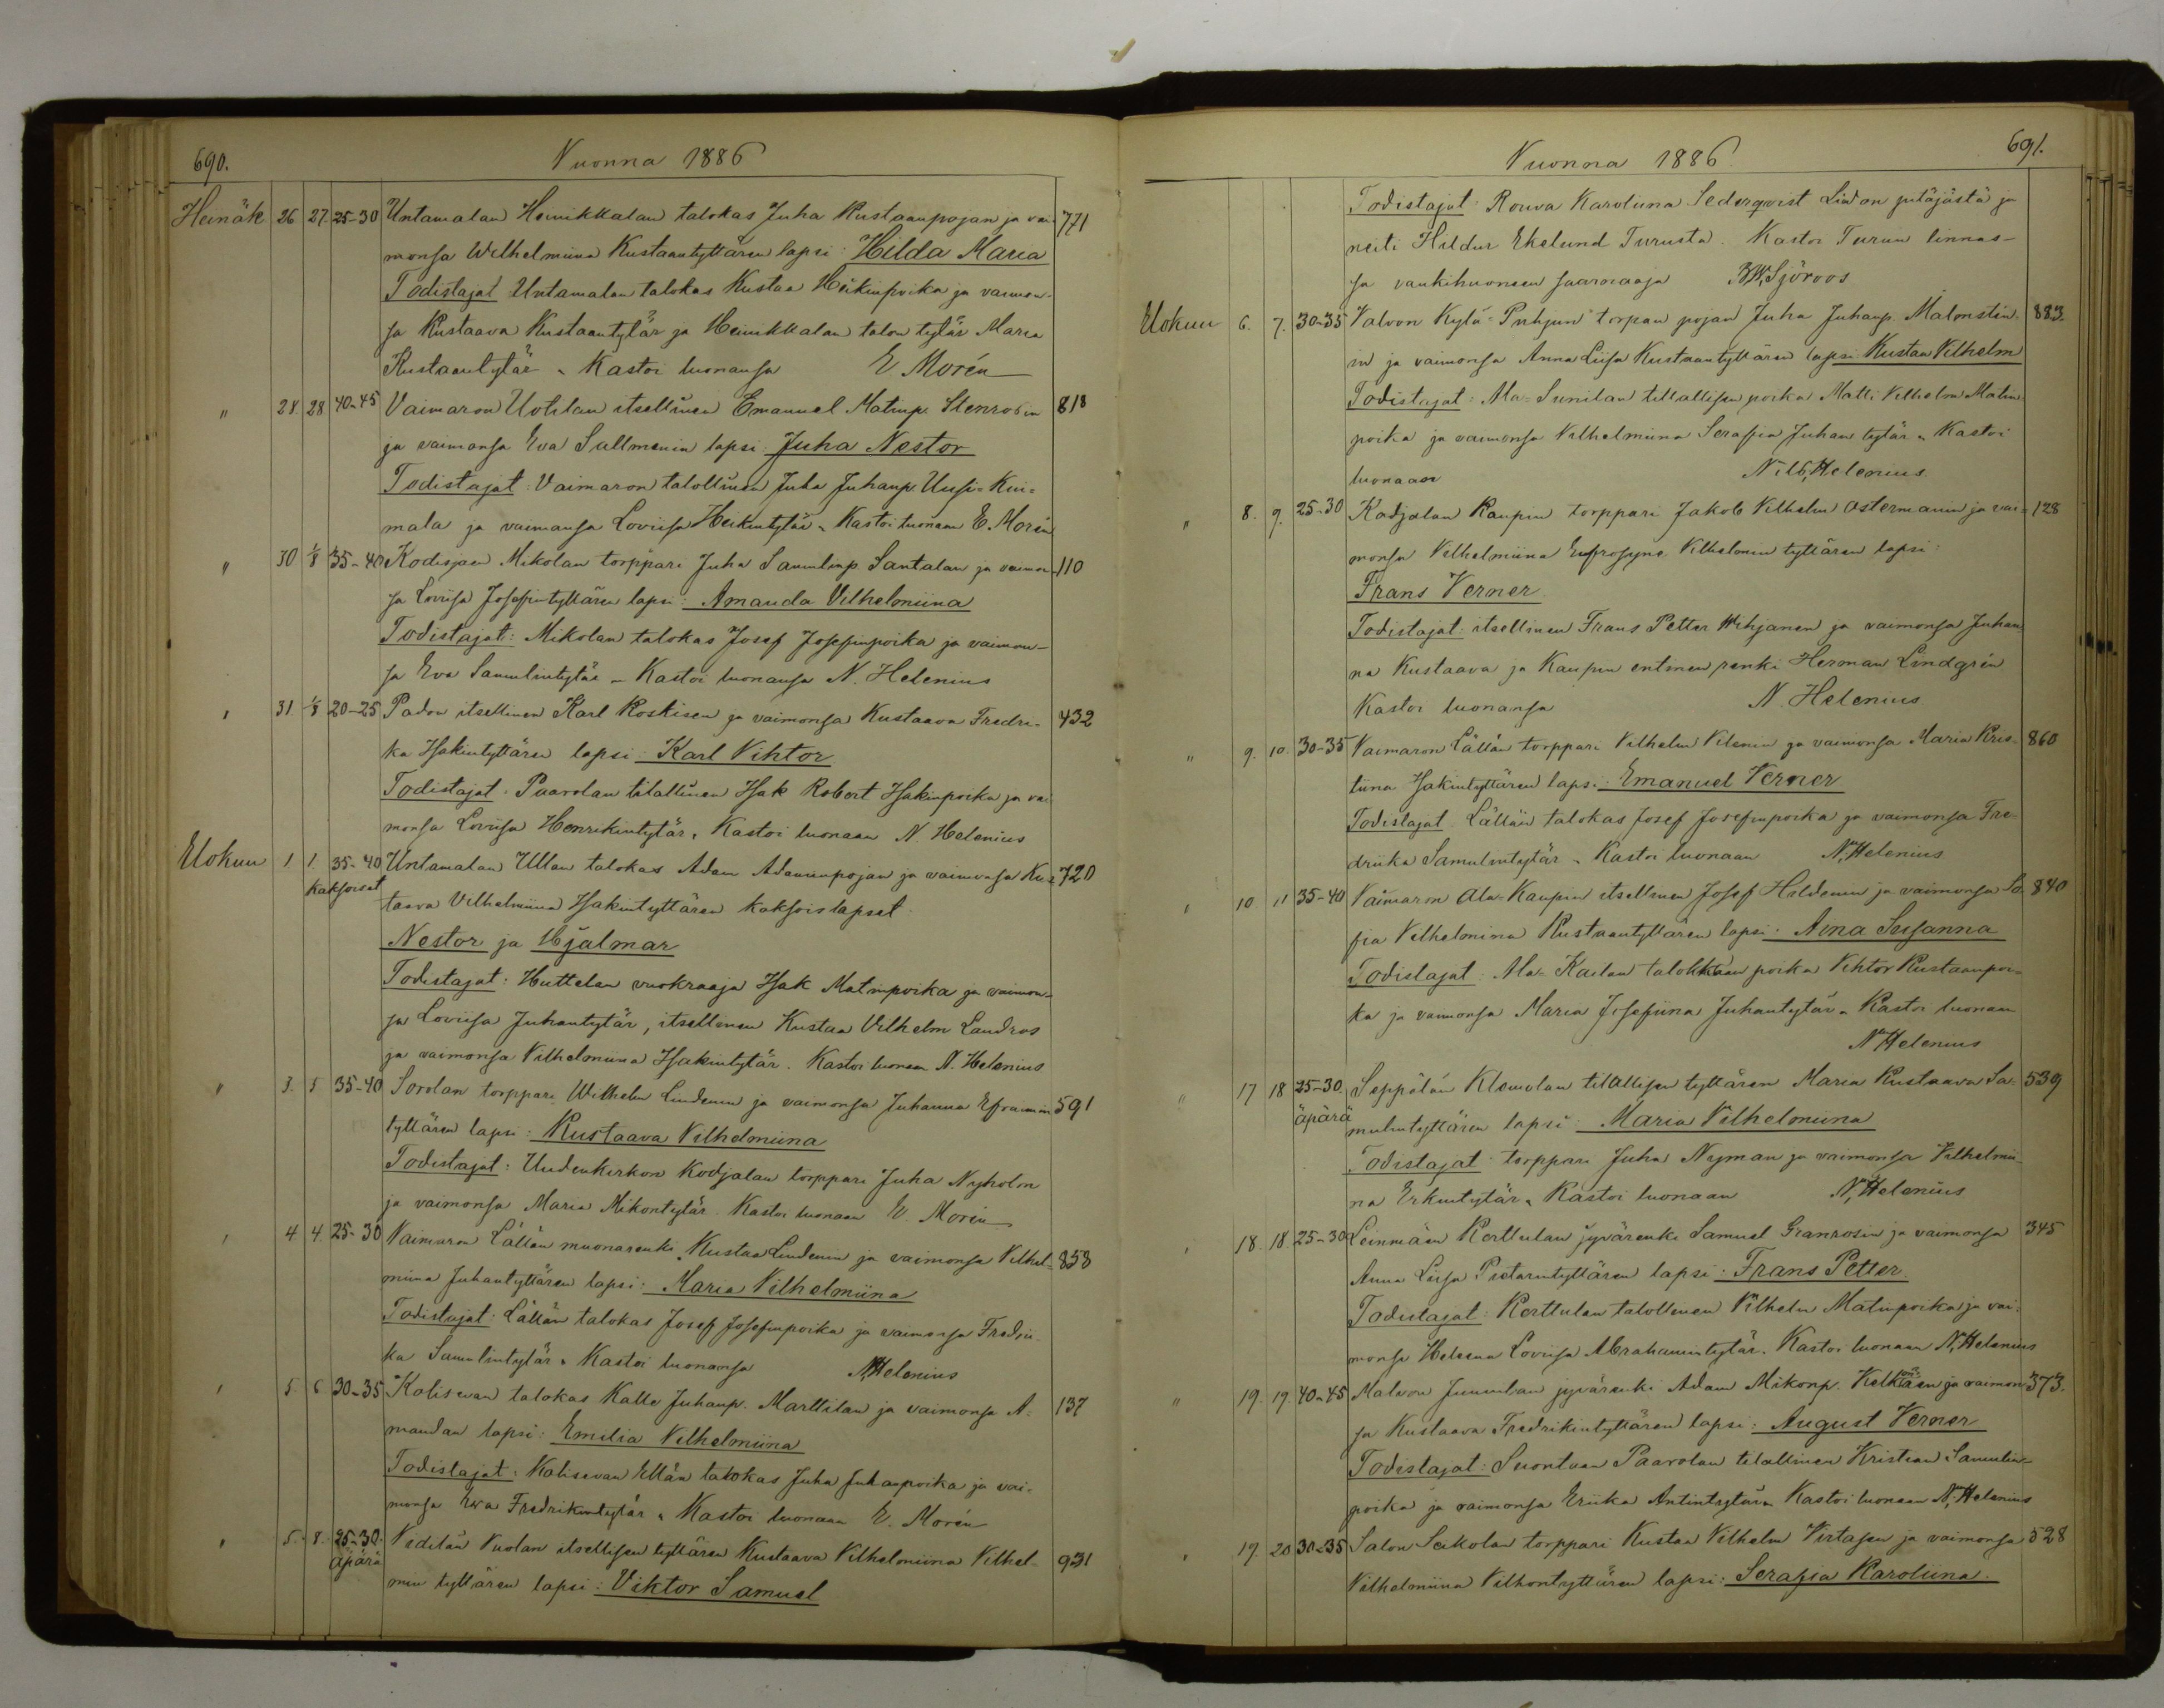 690.
Vuonna 1886
Heinäk 26 27. 25-30 Untamalan Heinikkalan talokas Juha Kustaanpojan ja vai- 771
monsa Wilhelmiina Kustaantyttären lapsi: Hilda Maria
Todistajat Untamalan talokas Kustaa Heikinpoika ja vaimon-
sa Kustaava Kustaantytär ja Heinikkalan talon tytär Maria
Kustaantytär. Kastoi luonansa E Morén
" 28 28 40-45 Vaimaron Uotilan itsellinen Emanuel Matinp. Stenrosin 818
ja vaimonsa Eva Sallmenin lapsi: Juha Nestor
Todistajat: Vaimaron talollinen Juha Juhanp. Uusi-Kui-
mala ja vaimonsa Loviisa Heikintytär. Kastoi luonaan E. Morén
" 30 1/8 35-40 Kodisjoen Mikolan torppari Juha Samulinp. Santalan ja vaimon- 110
sa Loviisa Josefintyttären lapsi: Amanda Vilhelmiina
Todistajat: Mikolan talokas Josef Josefinpoika ja vaimon-
sa Eva Samulintytär - Kastoi luonansa N. Helenius
" 31 1/8 20-25 Padon itsellinen Karl Koskisen ja vaimonsa Kustaava Fredri- 432
ka Isakintyttären lapsi: Karl Vihtor
Todistajat: Paavolan tilallinen Isak Robert Isakinpoika ja vai
monsa Loviisa Henrikintytär. Kastoi luonaan N. Helenius
Elokuu 1 1 35-40 Untamalan Ullan talokas Adam Adaminpojan ja vaimonsa Kus- 720
kaksoset taava Vilhelmiina Isakintyttären kaksoislapset
Nestor ja Hjalmar
Todistajat: Huttalan vuokraaja Isak Matinpoika ja vaimon-
sa Loviisa Juhantytär, itsellinen Kustaa Vilhelm Landros
ja vaimonsa Vilhelmiina Isakintytär. Kastoi luonaan N. Helenius
" 3. 5 35-40 Sorolan torppari Wilhelm Lindenin ja vaimonsa Juhanna Efraimin 591
tyttären lapsi: Kustaava Vilhelmiina
Todistajat: Uudenkirkon Kodjalan torppari Juha Nyholm
ja vaimonsa Maria Mikontytär. Kastoi luonaan E. Morén
" 4. 4. 25-30 Vaimaron Lällän muonarenki Kustaa Lindenin ja vaimonsa Vilhel- 858
miina Juhantyttären lapsi: Maria Vilhelmiina
Todistajat: Lällän talokas Josef Josefinpoika ja vaimonsa Fredrii-
ka Samulintytär. Kastoi luonansa N. Helenius
" 5. 6 30-35 Kolisevan talokas Kalle Juhanp. Marttilan ja vaimonsa A- 137
mandan lapsi: Emilia Vilhelmiina
Todistajat: Kolisevan Ellän talokas Juha Juhanpoika ja vai-
monsa Ewa Fredrikintytär. Kastoi luonaan E. Morén
" 5. 8. 25-30. Vidilän Vuolan itsellisen tyttären Kustaava Vilhelmiina Vilhel- 931
äpärä min tyttären lapsi: Viktor Samuel
691.
Vuonna 1886
Todistajat: Rouva Karoliina Sederqvist Liedon pitäjästä ja
neiti Hildur Ekelund Turusta. Kastoi Turun linnas-
sa vankihuoneen saarnaaja Sjöroos
Elokuu 6. 7. 30-35 Valvon Kylä-Puhjun torpan pojan Juha Juhanp. Malmstin- 883.
in ja vaimonsa Anna Liisa Kustaantyttären lapsi Kustaa Vilhelm
Todistajat: Ala-Sunilan tilallisen poika Matti Vilhelm Matin-
poika ja vaimonsa Vilhelmiina Serafia Juhan tytär. Kastoi
luonaan Nils Helenius.
" 8. 9. 25-30 Kodjalan Kaupin torppari Jakob Vilhelm Ostermanin ja vai- 128
monsa Vilhelmiina Eufrosyne Vilhelmin tyttären lapsi:
Frans Verner
Todistajat: itsellinen Frans Petter Wihjanen ja vaimonsa Juhan-
na Kustaava ja Kaupin entinen renki Herman Lindgrén
Kastoi luonansa N. Helenius
" 9. 10. 30-35 Vaimaron Lällän torppari Vilhelm Vilenin ja vaimonsa Maria Kris- 860
tiina Isakintyttären lapsi: Emanuel Verner
Todistajat Lällän talokas Josef Josefinpoika ja vaimonsa Fre-
driika Samulintytär. Kastoi luonaan N. Helenius
" 10. 11 35-40 Vaimaron Ala-Kaupin itsellinen Josef Hildenin ja vaimonsa So- 840
fia Vilhelmina Kustaantyttären lapsi: Aina Susanna
Todistajat Ala-Kailan talokkaan poika Vihtor Kustaanpoi-
ka ja vaimonsa Maria Josefiina Juhantytär. Kastoi luonaan
N Helenius
" 17 18 25-30. Seppälän Klemolan tilallisen tyttären Maria Kustaava Sa- 539
äpärä mulintyttären lapsi: Maria Vilhelmiina
Todistajat torppari Juha Nyman ja vaimonsa Vilhelmii-
na Erkintytär. Kastoi luonaan N. Helenius
" 18. 18 25-30 Leinmäen Kerttulan jyvärenki Samuel Granrosin ja vaimonsa 345
Anna Liisa Pietarintyttären lapsi: Frans Petter.
Todistajat: Kerttulan talollinen Vilhelm Matinpoika ja vai-
monsa Heleena Loviisa Abrahamintytär. Kastoi luonaan N. Helenius
" 19. 19. 40-45 Malvon Juusulan jyvärenki Adam Mikonp. ja vaimon- 373.
sa Kustaava Fredrikintyttären lapsi: August Verner
Todistajat: Suontaan Paavolan tilallinen Kristian Samulin-
poika ja vaimonsa Eriika Antintytär. Kastoi luonaan N. Helenius
" 19. 20 30-35 Salon Seikolan torppari Kustaa Vilhelm Virtasen ja vaimonsa 528
Vilhelmiina Vilhontyttären lapsi: Serafia Karoliina.